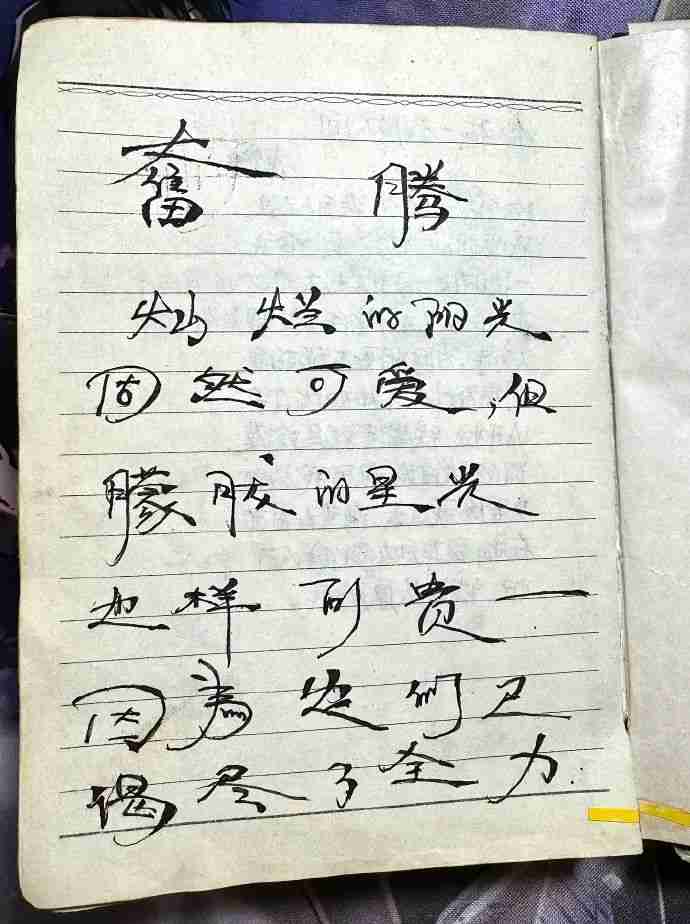 奮腾
灿烂的阳光
固然可爱,但
朦胧的星光
也样可贵—
因为它们已
竭尽了全力.